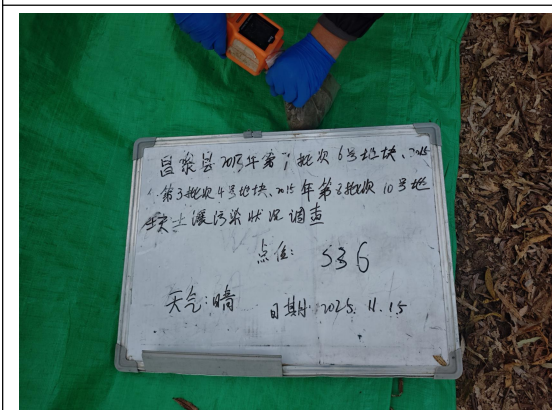 昌乐县2015年第7批次6号地块、2015
第3批次4号地块、2015年第8批次10号地
块土壤污染状况调查
点位: S36
天气:晴 日期: 2025.11.15